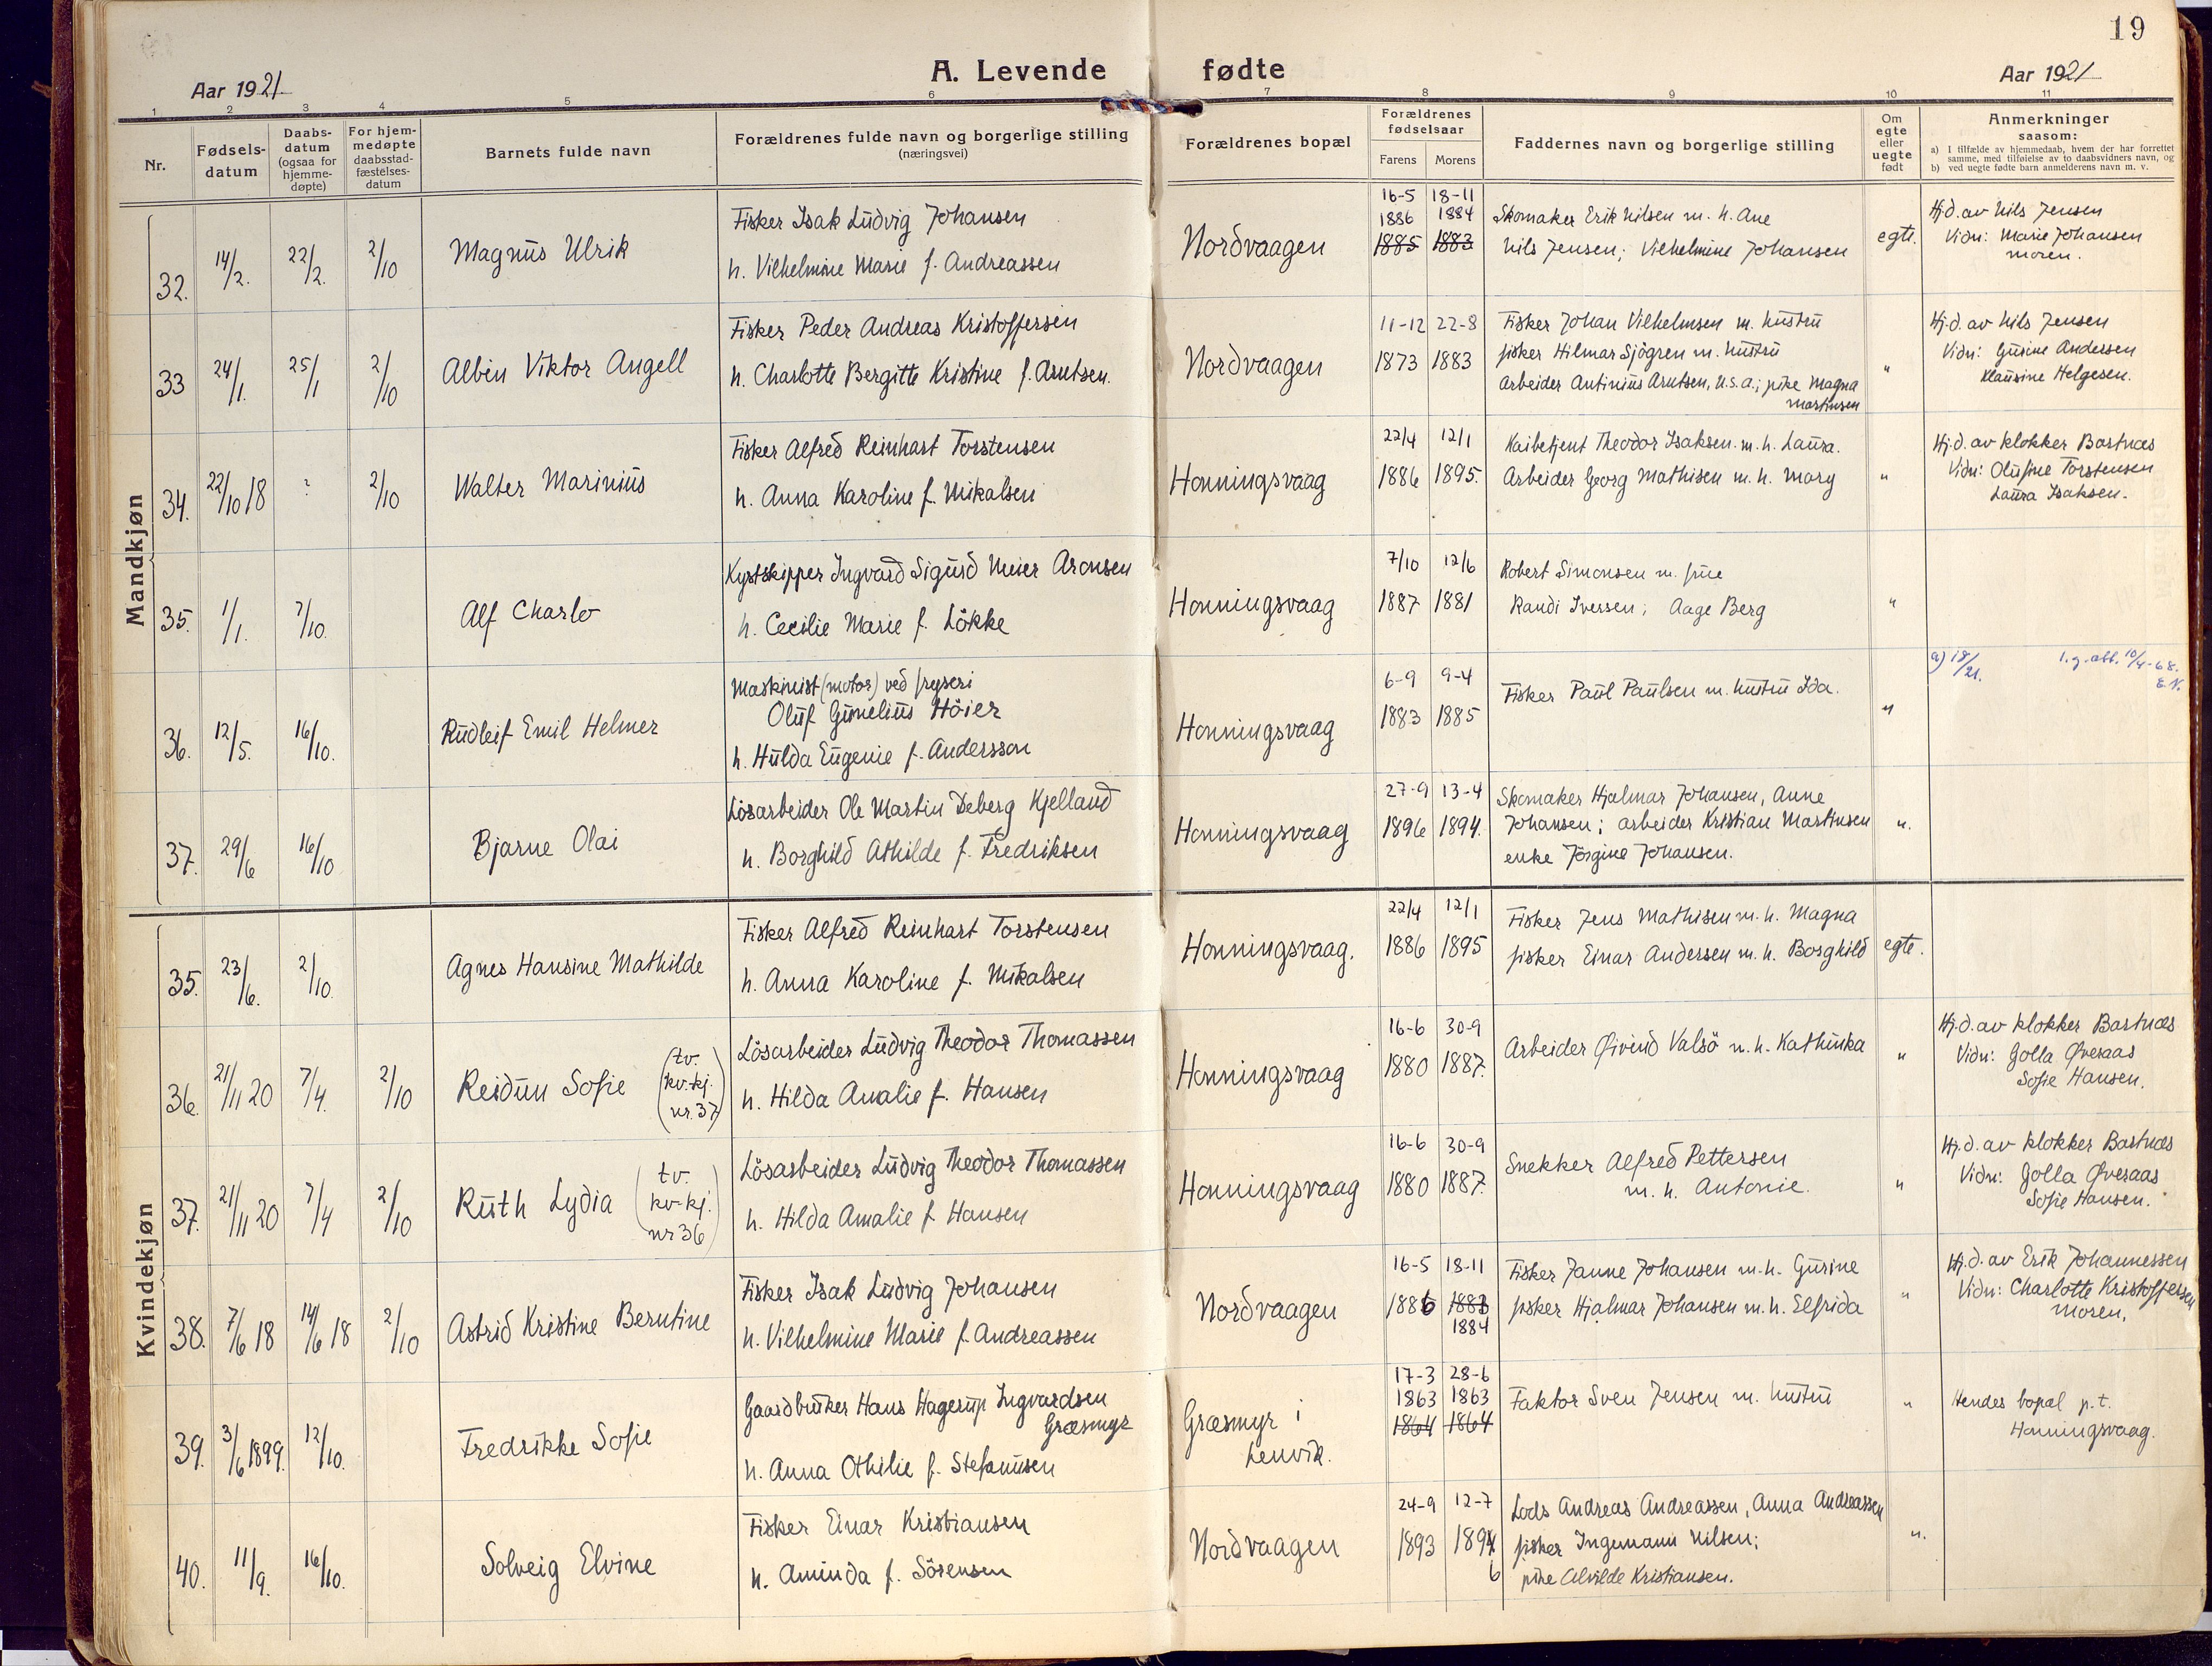 19
A. Levende fødte
Aar 1921
Aar 1921
1 2 3 4 5 6 7 8 9 10 11
Nr.
Fødsels-
datum
Daabs-
datum
(ogsaa for
hjemme-
døpte)
For hjem-
medøpte
daabsstad-
fæstelses-
datum
Barnets fulde navn
Forældrenes fulde navn og borgerlige stilling
(næringsvei)
Forældrenes bopæl
Forældrenes
fødselsaar
Farens Morens
Faddernes navn og borgerlige stilling
Om
egte
eller
uegte
født
Anmerkninger
saasom:
a) I tilfælde av hjemmedaab, hvem der har forrettet
samme, med tilføielse av to daabsvidners navn, og
b) ved uegte fødte barn anmelderens navn m. v.
Mandkjøn
32. 14/2. 22/2. 2/10
Magnus Ulrik
Fisker Isak Ludvig Johansen
h. Vilhelmine Marie f. Andreassen
Nordvaagen
16-5 18-11
1886 1884
1885 1883
Skomaker Erik Nilsen m. h. Ane
Nils Jensen; Vilhelmine Johansen
egte.
Hj.d. av Nils Jensen
Vidn: Marie Johansen
moren.
33 24/1. 25/1 2/10
Albin Viktor Angell
Fisker Peder Andreas Kristoffersen
h. Charlotte Bergitte Kristine f. Arntsen.
Nordvaagen
11-12 22-8
1873 1883
Fisker Johan Vilhelmsen m. hustru
fisker Hilmar Sjögren m. hustru
Arbeider Antinius Arntsen, U.S.A.; pike Magna
Martinsen
"
Hj.d. av Nils Jensen
Vidn: Gusine Andersen
Klausine Helgesen.
34. 22/10 18 ? 2/10
Walter Marinius
Fisker Alfred Reinhart Torstensen
h. Anna Karoline f. Mikalsen
Honningsvaag
22/4 12/1
1886 1895.
Kaibetjent Theodor Isaksen m. h. Laura.
Arbeider Georg Mathisen m. h. Mary
"
Hj.d. av klokker Bastnæs
Vidn: Olufine Torstensen
Laura Isaksen.
35. 1/1. 7/10.
Alf Charlo
Kystskipper Ingvard Sigurd Meier Aronsen
h. Cecilie Marie f. Lökke
Honningsvaag
7/10 12/6
1887 1881
Robert Simonsen m. frue
Randi Iversen; Aage Berg
"
36. 12/5. 16/10.
Rudleif Emil Helmer
Maskinist (motor) ved fryseri
Oluf Gunelius Höier
h. Hulda Eugenie f. Andersson
Honningsvaag
6-9 9-4
1883 1885
Fisker Paul Paulsen m. hustru Ida.
"
a) 18/21. 1. g. att. 10/4-68.
E.N.
37. 29/6 16/10
Bjarne Olai
Lösarbeider Ole Martin Deberg Kjelland
h. Borghild Athilde f. Fredriksen
Honningsvaag
27-9 13-4
1896 1894.
Skomaker Hjalmar Johansen, Anne
Johansen; arbeider Kristian Martinsen
enke Jörgine Johansen.
".
Kvindekjøn
35. 23/6. 2/10.
Agnes Hansine Mathilde
Fisker Alfred Reinhart Torstensen
h. Anna Karoline f. Mikalsen
Honningsvaag.
22/4 12/1
1886 1895
Fisker Jens Mathisen m. h. Magna
fisker Einar Andersen m. h. Borghild
egte.
36. 21/11 20 7/4. 2/10
Reidun Sofie (tv. kv.kj. nr. 37)
Lösarbeider Ludvig Theodor Thomassen
h. Hilda Amalie f. Hansen
Honningsvaag
16-6 30-9
1880 1887.
Arbeider Øivind Valsö m. h. Kathinka
"
Hj.d. av klokker Bastnæs
Vidn: Golla Øveraas
Sofie Hansen.
37. 21/11 20 7/4 2/10
Ruth Lydia (tv. kv.kj. nr 36)
Lösarbeider Ludvig Theodor Thomassen
h. Hilda Amalie f. Hansen
Honningsvaag
16-6 30-9
1880 1887.
Snekker Alfred Pettersen
m. h. Antonie.
"
Hj.d. av klokker Bastnæs
Vidn: Golla Øveraas
Sofie Hansen.
38. 7/6 18 14/6 18 2/10
Astrid Kristine Berntine
Fisker Isak Ludvig Johansen
h. Vilhelmine Marie f. Andreassen
Nordvaagen
16-5 18-11
1886 1883
1884
Fisker Janne Johansen m. h. Gurine
fisker Hjalmar Johansen m. h. Elfrida
"
Hj.d. av Erik Johannessen
Vidn: Charlotte Kristoffersen
moren.
39. 3/6 1899. 12/10.
Fredrikke Sofie
Gaardbruker Hans Hagerup Ingvardsen
Græsmyr
h. Anna Othilie f. Stefanusen
Græsmyr i
Lenvik.
17-3 28-6
1863 1863
1864 1864
Faktor Sven Jensen m. hustru
"
Hendes bopæl p.t.
Honningsvaag.
40. 11/9. 16/10.
Solveig Elvine
Fisker Einar Kristiansen
h. Aminda f. Sörensen
Nordvaagen
24-9 12-7
1893 1894
6
Lods Andreas Andreassen, Anna Andreassen
fisker Ingemann Nilsen;
pike Alvilde Kristiansen.
".